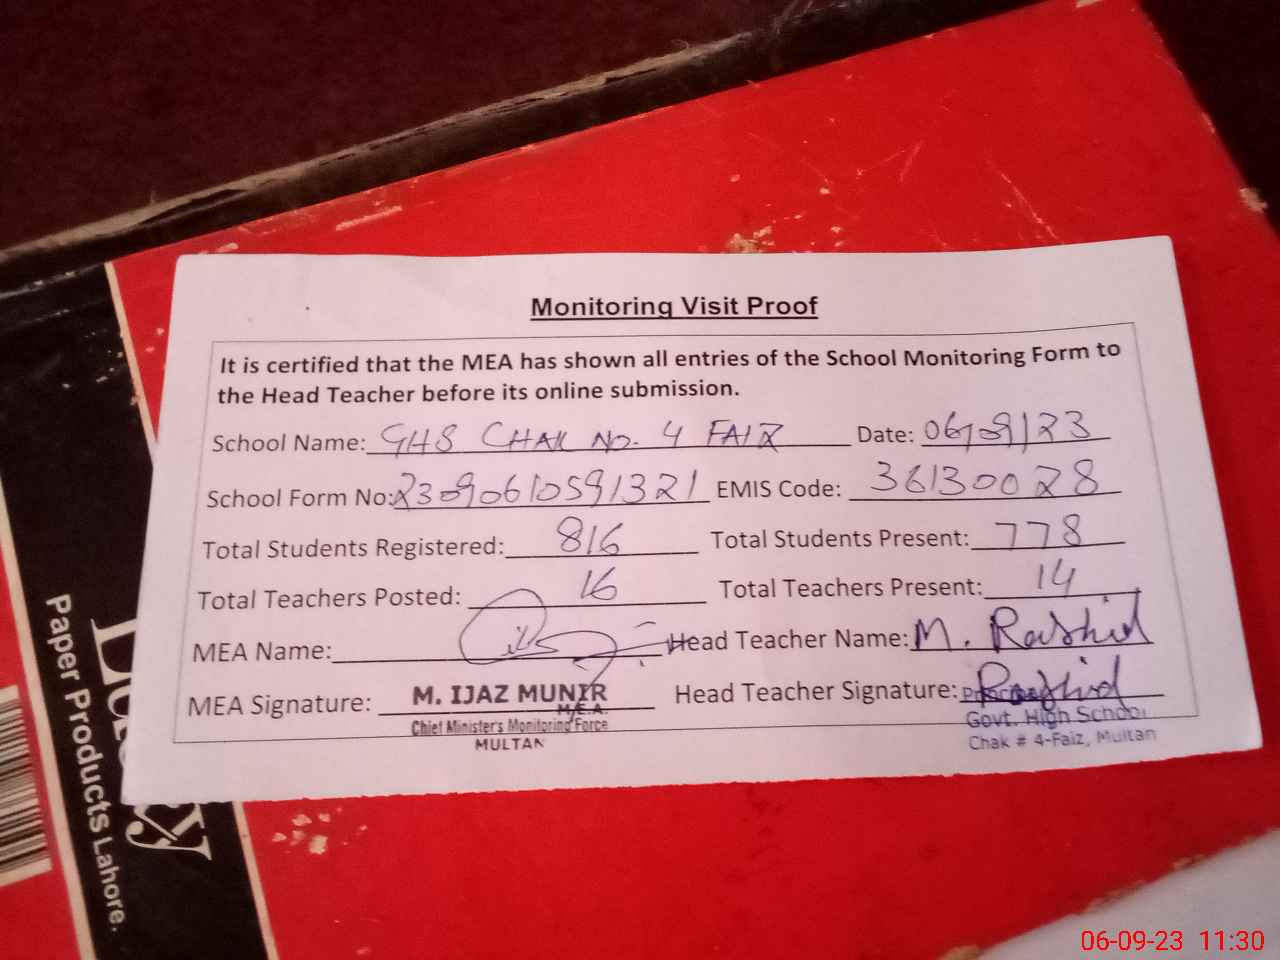 Monitoring Visit Proof
It is certified that the MEA has shown all entries of the School Monitoring Form to
the Head Teacher before its online submission.
School Name: GHS CHAK NO. 4 FAIZ Date: 06/09/23
School Form No: 23090610591321 EMIS Code: 36130028
Total Students Registered: 816 Total Students Present: 778
Total Teachers Posted: 16 Total Teachers Present: 14
MEA Name: Head Teacher Name: M. Rashid
MEA Signature: M. IJAZ MUNIR Head Teacher Signature: Rashid
M.E.A.
Chief Minister's Monitoring Force
MULTAN
Principal
Govt. High School
Chak # 4-Faiz, Multan
Paper Products Lahore.
06-09-23 11:30